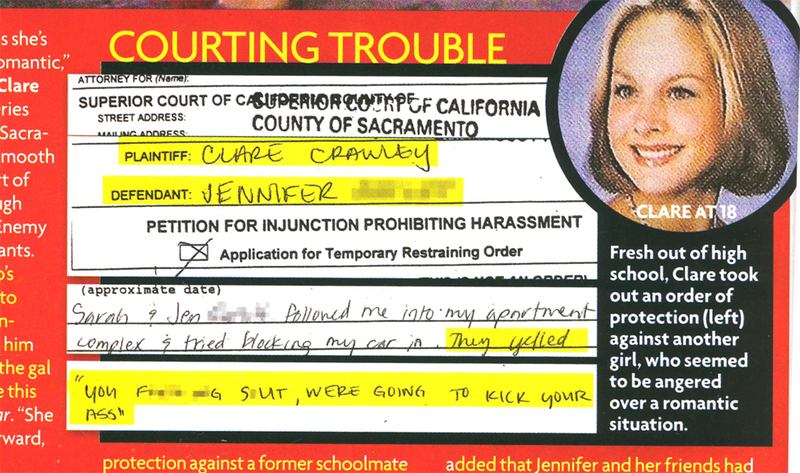 s she's
omantic,”
Clare
ries
Sacra-
mooth
rt of
ugh
Enemy
ants.
o's
to
n-
him
the gal
e this
ar. “She
rward,
COURTING TROUBLE
ATTORNEY FOR (Name):
SUPERIOR COURT OF CALIFORNIA, COUNTY OF
SUPERIOR COURT OF CALIFORNIA
COUNTY OF SACRAMENTO
STREET ADDRESS:
MAILING ADDRESS:
PLAINTIFF: CLARE CRAWLEY
DEFENDANT: JENNIFER
PETITION FOR INJUNCTION PROHIBITING HARASSMENT
Application for Temporary Restraining Order
(approximate date)
Sarah & Jen followed me into my apartment
complex & tried blocking my car in. They yelled
"YOU F G S UT, WERE GOING TO KICK YOUR
ASS"
CLARE AT 18
Fresh out of high
school, Clare took
out an order of
protection (left)
against another
girl, who seemed
to be angered
over a romantic
situation.
protection against a former schoolmate
added that Jennifer and her friends had